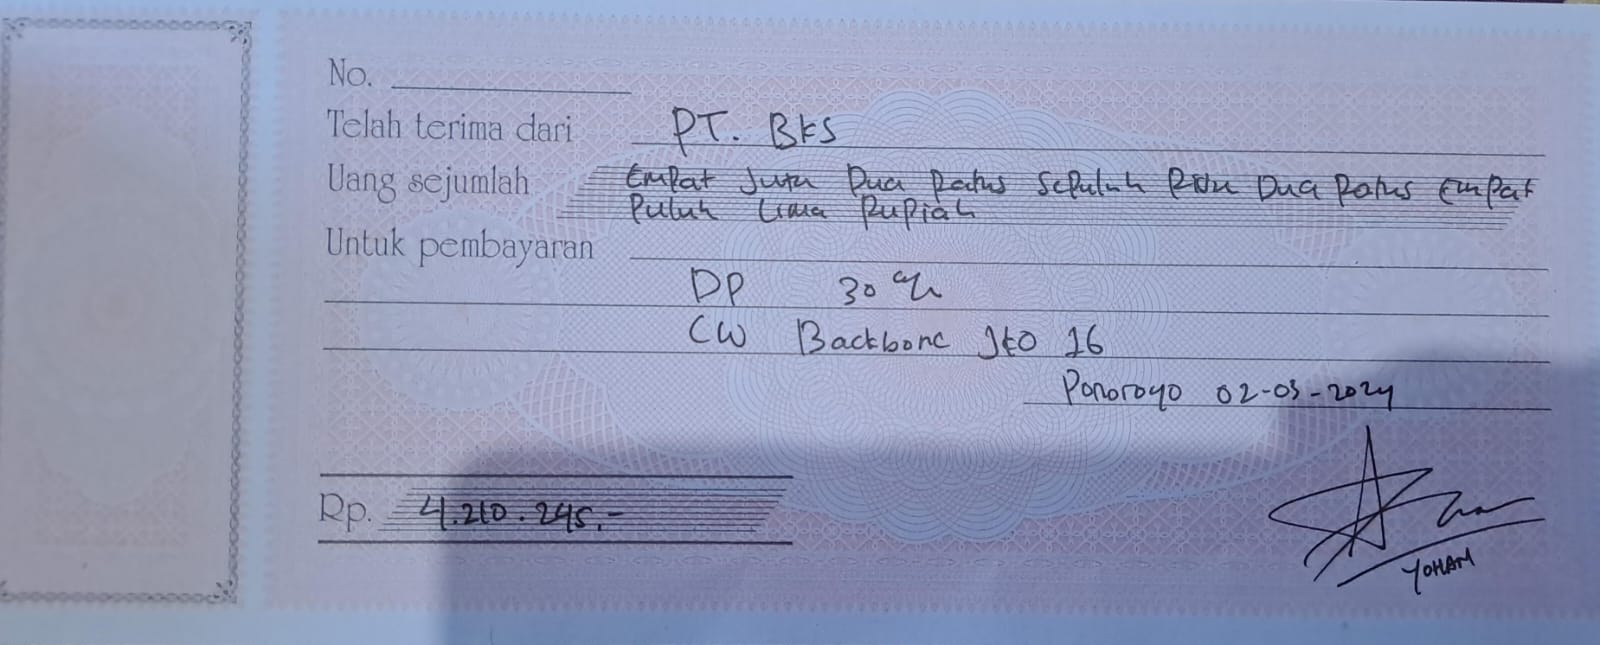 No.
Telah terima dari PT. BKS
Uang sejumlah Empat Juta Dua Ratus Sepuluh Ribu Dua Ratus Empat
Puluh Lima Rupiah
Untuk pembayaran
DP 30 %
CW Backbone Jko 16
Ponorogo 02-03-2024
Rp. 4.210.245.-
YOHAM